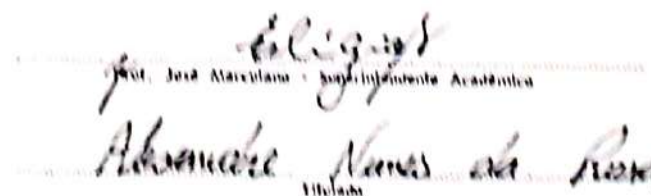 Prof. José Marcelano - Superintendente Acadêmico
Alexandre Nunes da Rosa
Titulado